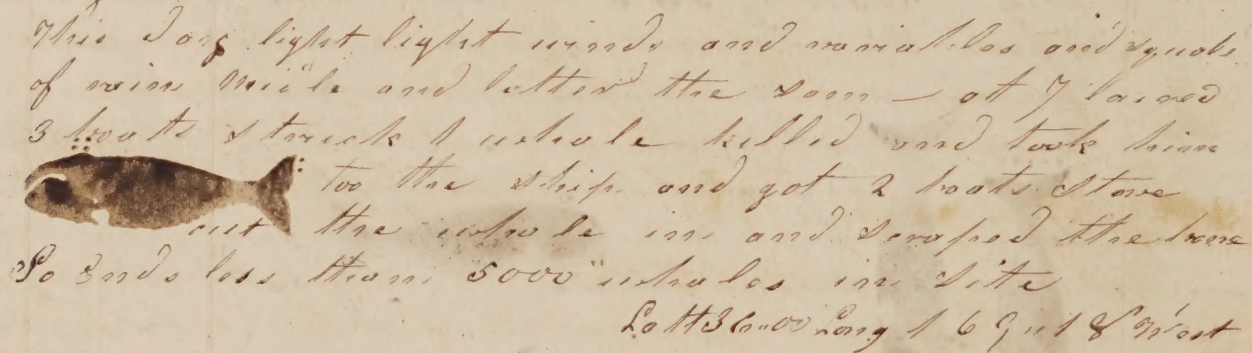 This day light light winds and variables and squals
of rain Midle and latter the sam — at 7 lowred
3 boats struck 1 whale killed and took him
too the ship and got 2 boats stove
cut the whale in and scraped the bone
So Ends less than 5000 whales in Site
Latt 36..00 Long 169..18 West